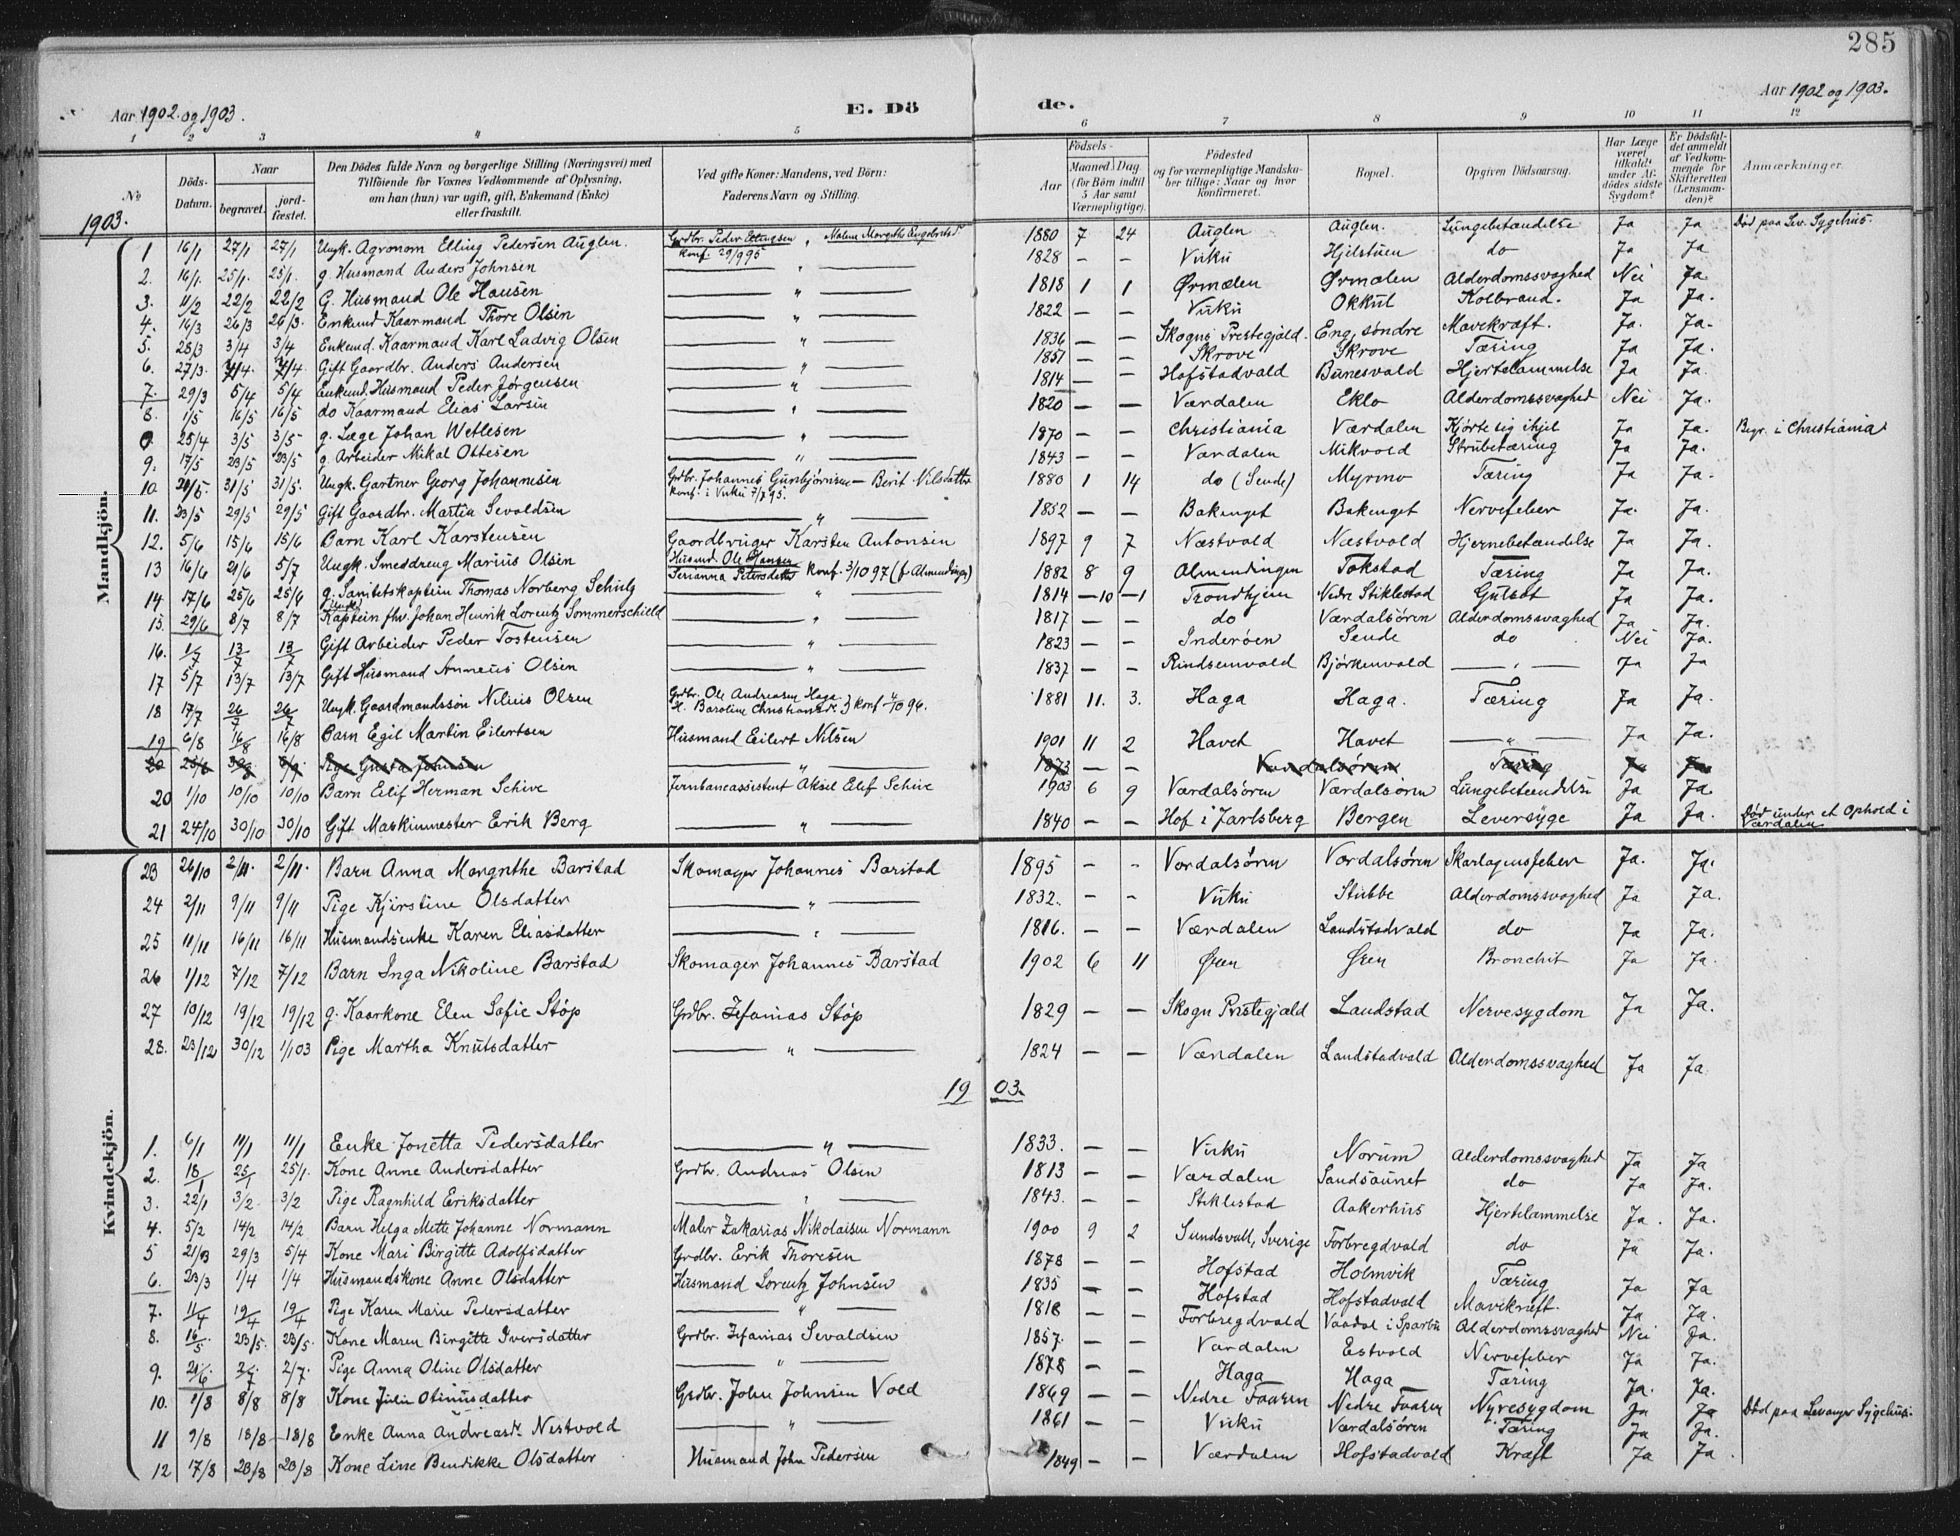 285
Aar 1902 og 1903.
E. Dö de.
Aar 1902 og 1903.
1 2 3 4 5 6 7 8 9 10 11 12
No
Döds-Datum.
Naar begravet. jordfæstet.
Den Dödes fulde Navn og borgerlige Stilling (Næringsvei) med Tilföiende for Voxnes Vedkommende af Oplysning, om han (hun) var ugift, gift, Enkemand (Enke) eller fraskilt.
Ved gifte Koner: Mandens, ved Börn: Faderens Navn og Stilling.
Födsels- Aar Maaned Dag (for Börn indtil 5 Aar samt Værnepligtige).
Födested og for værnepligtige Mandskaber tillige: Naar og hvor konfirmeret.
Bopæl.
Opgiven Dödsaarsag.
Har Læge været tilkaldt under Afdödes sidste Sygdom?
Er Dödsfaldet anmeldt af Vedkommende for Skifteretten (Lensmanden)?
Anmærkninger.
1903.
Mandkjön.
1 16/1 27/1 27/1 Ungk. Agronom Elling Pedersen Auglen. Grdbr. Peder Ellingsen " Malene Margithe Engebritsd. konf. 29/9 95 1880 7 24 Auglen Auglen. Lungebetændelse Ja Ja Død paa Lev. Sygehus.
2. 16/1 25/1. 25/1. g. Husmand Anders Johnsen — " — 1828 — — Vuku Hjelstuen do Ja Ja.
3. 11/2 22/2 22/2 G. Husmand Ole Hansen — " — 1818 1 1 Ørmælen Ørmælen Alderdomssvaghed Nei Ja.
4. 16/3 26/3 26/3. Enkemd Kaarmand Thore Olsen — " — 1822 — — Vuku Okkul Kolbrand. Ja Ja.
5. 25/3 3/4 3/4 Enkemd. Kaarmand Karl Ludvig Olsen — 1836 — — Skogns Prestegjæld. Eng, søndre Mavekræft. Ja. Ja.
6. 27/3. 4/4. 4/4. Gift Gaardbr. Anders Andersen — " — 1851 — — Skrove Skrove Tæring Ja Ja.
7. 29/3 5/4 5/4 Enkemd. Husmand Peder Jørgensen — " — 1814 — — Hofstadvald Bunesvald Hjertelammelse Ja Ja.
8. 1/5 16/5 16/5 do Kaarmand Elias Larsen — " — 1820 — — Værdalen Eklo Alderdomssvaghed Nei Ja.
25/4 3/5 3/5. g. Læge Johan Wetlesen — " — 1870 — — Christiania Værdalen Kjørte sig ihjel Ja Ja. Begr. i Christiania
9. 17/5 23/5 23/5. g. Arbeider Mikal Ottesen — " — 1843 — — Værdalen Mikvold Strubetæring Ja Ja.
10. 21/5. 31/5 31/5. Ungk. Gartner Georg Johannesen Grdbr. Johannes Gunbjørnsen — Berit Nilsdatter konf. i Vuku 7/7 95. 1880 1 14 do (Sende) Myrmo Tæring Ja Ja.
11. 23/5 29/5 29/5 Gift Gaardbr. Martin Sevaldsen — " — 1852 — — Bakenget Bakenget Nervefeber Ja. Ja.
12. 5/6 15/6 15/6 Barn Karl Karstensen Gaardbruger Karsten Antonsen 1897 9 7 Næstvold Næstvold Hjernebetændelse Ja Ja.
13 16/6 21/6 5/7 Ungk. Smeddreng Marius Olsen Husmd. Ole Hansen Serianna Petersdatter konf. 3/10 97 (f. Almendingen) 1882 8 9 Almendingen Tokstad Tæring Ja Ja.
14 17/6 25/6 25/6 g. Sanitetskaptein Thomas Norberg Schulz — " — 1814 — 10 — 1 Trondhjem Nedre Stiklestad Gulsot Ja Ja.
15. 29/6 8/7 8/7 Kaptein fhv. Johan Henrik Lorentz Sommerschield — " — 1817 — — do Værdalsören Alderdomssvaghed Ja Ja.
16. 1/7 13/7 13/7 Gift Arbeider Peder Tostensen — " — 1823 — — Inderøen Sende do Nei Ja.
17 5/7 13/7 13/7 Gift Husmand Anneus Olsen — " — 1837 — — Rindsemvald Bjørkenvald — " — Ja Ja
18 17/7 26/7 26/7 Ungk. Gaardmandssøn Nilius Olsen Grdbr. Ole Andreasen Haga. H. Baroline Christiansd. } konf 4/10 96. 1881 11. 3. Haga Haga. Tæring Ja Ja.
19 6/8 16/8 16/8 Barn Egil Martin Eilertsen Husmand Eilert Nilsen 1901 11 2 Havet Havet — " — Ja Ja.
20 Pige Gusta Johnsen — " — 1873 — — Værdalsören Tæring Ja Ja
20 1/10 10/10 10/10 Barn Eilif Herman Schive Jernbaneassistent Aksel Eilif Schive 1903 6 9 Værdalsören Værdalsören Lungebetændelse Ja Ja.
21 24/10 30/10 30/10 Gift Maskinmester Erik Berg — " — 1840 — — Hof i Jarlsberg Bergen Leversyge Ja Ja. Død under et Ophold i Værdalen
Kvindekjön.
23 26/10 2/11. 2/11. Barn Anna Margrethe Barstad Skomager Johannes Barstad 1895 — — Værdalsören Værdalsören Skarlagensfeber Ja. Ja.
24 2/11 9/11 9/11 Pige Kjerstine Olsdatter — " — 1832. — — Vuku Stubbe Alderdomssvaghed Ja Ja.
25 11/11 16/11 16/11 Husmandsenke Karen Eliasdatter — " — 1816. — — Værdalen Landstadvald do Ja Ja.
26 1/12 7/12 7/12 Barn Inga Nikoline Barstad Skomager Johannes Barstad 1902 6 11 Øren Øren Bronchit Ja Ja.
27 10/12 19/12 19/12 g. Kaarkone Elen Sofie Støp Grdbr. Zefanias Støp 1829 — — Skogn Prestegjæld Landstad Nervesygdom Ja Ja.
28. 23/12 30/12 1/1 03 Pige Martha Knutsdatter — " — 1824 — — Værdalen Landstadvald Alderdomssvaghed Ja Ja.
19 03.
1. 6/1 11/1 11/1 Enke Jonetta Pedersdatter — " — 1833. — — Vuku Norum Alderdomssvaghed Ja Ja
2. 18/1 25/1 25/1. Kone Anne Andersdatter Grdbr. Andreas Olsen 1813 — — Værdalen Sandsaunet do Ja Ja.
3. 22/1 3/2. 3/2 Pige Ragnhild Eriksdatter — " — 1843. — — Stiklestad Aakerhus Hjertelammelse Ja. Ja.
4. 5/2 14/2 14/2 Barn Helga Mette Johanne Normann Maler Zakarias Nikolaisen Normann 1900 9 2 Sundsvall, Sverige Forbregdvald do Ja Ja.
5 21/3 29/3 5/4 Kone Mari Birgitte Adolfsdatter Grdbr. Erik Thoresen 1878 — — Hofstad Holmvik Tæring Ja Ja
6. 23/3 1/4 1/4 Husmandskone Anne Olsdatter Husmand Lorentz Johnsen 1835 — — Hofstad Hofstadvald Mavekræft. Ja Ja.
7. 11/4 19/4 19/4 Pige Karen Marie Pedersdatter — " — 1818 — — Forbregdvald Vaadal i Sparbu Alderdomssvaghed Nei Ja.
8. 16/5 23/5. 23/5. Kone Maren Birgitte Iversdatter Grdbr. Zefanias Sevaldsen 1857. — — Værdalen Estvold Nervefeber Ja Ja.
9. 21/6. 2/7 2/7. Pige Anna Oline Olsdatter — " — 1878 — — Haga Haga Tæring Ja. Ja.
10. 1/8 8/8 8/8 Kone Julie Otinusdatter Grdbr. John Johnsen Vold 1869 — — Nedre Faaren Nedre Faaren Nyresygdom Ja Ja Død paa Levanger Sygehus.
11 9/8 18/8 18/8 Enke Anna Andreasd. Nestvold — " — 1861 — — Vuku Værdalsören Tæring Ja Ja.
12 17/8 23/8 23/8 Kone Line Bendikke Olsdatter Husmand John Pedersen 1849 — — Værdalen Hofstadvald Kræft Ja Ja.